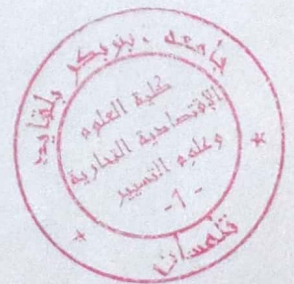 جامعة .بوبكر بلقايد
كلية العلوم
الإقتصادية التجارية
وعلوم التسيير
-1-
* تلمسان *